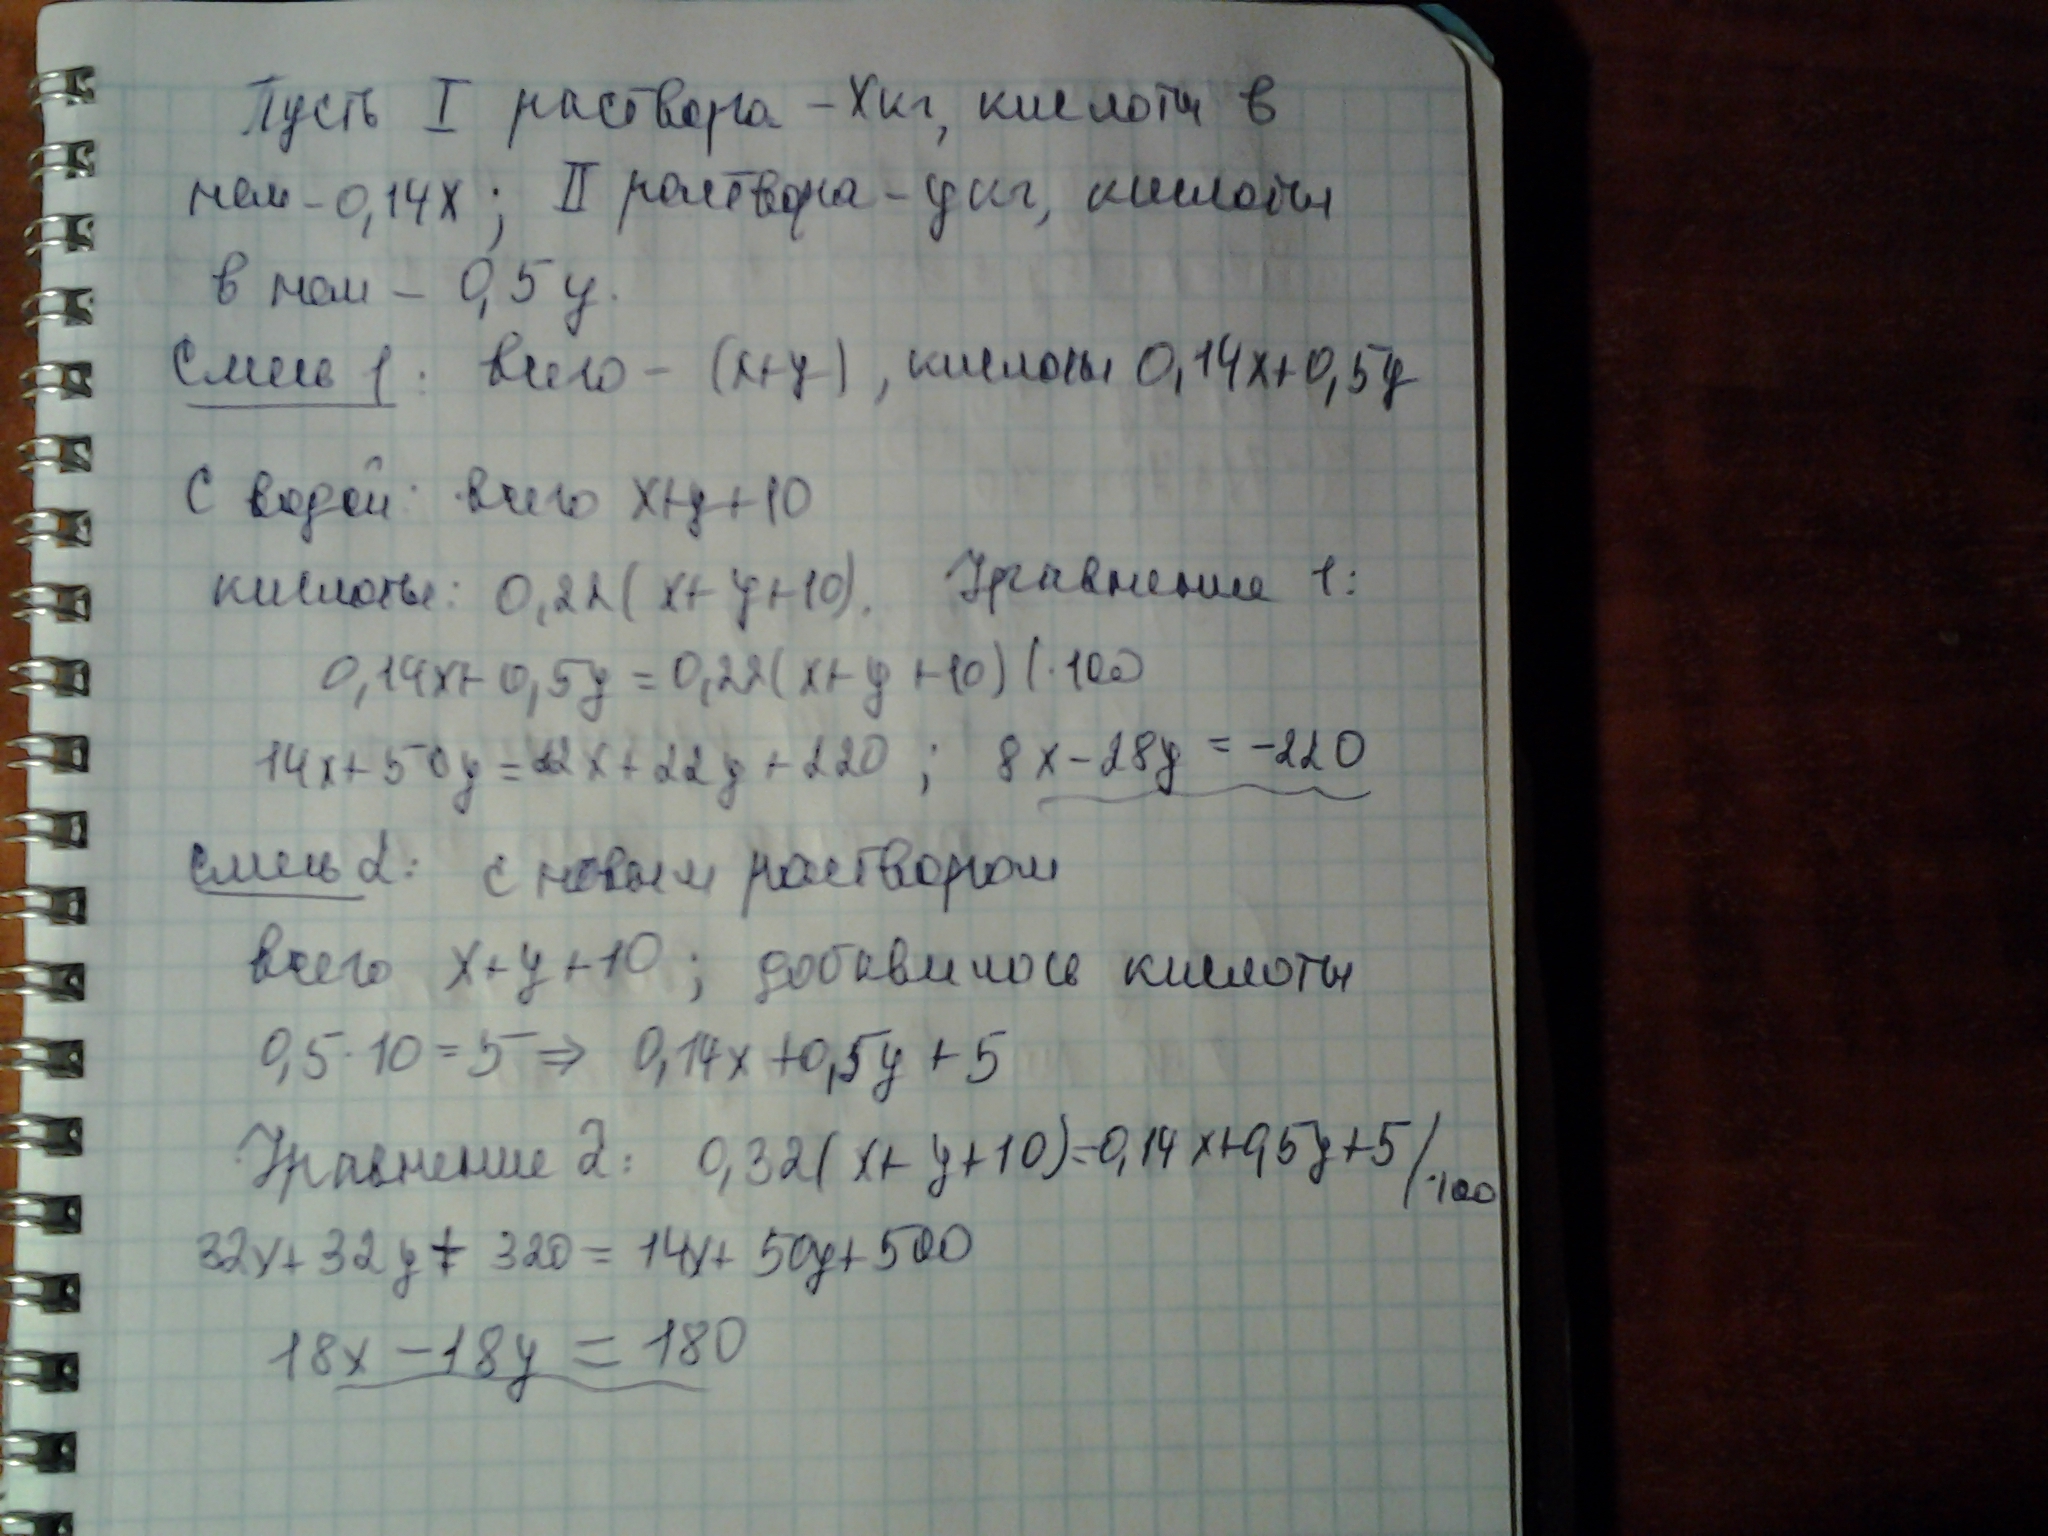 Пусть I раствора – x кг, кислоты в
нем – 0,14x; II раствора – y кг, кислоты
в нем – 0,5y.
Смесь 1: всего – (x+y), кислоты 0,14x+0,5y
С водой: всего x+y+10
кислоты: 0,22(x+y+10). Уравнение 1:
0,14x+0,5y=0,22(x+y+10) (·100
14x+50y=22x+22y+220; 8x-28y=-220
Смесь 2: с новым раствором
всего x+y+10; добавилось кислоты
0,5·10=5 ⇒ 0,14x+0,5y+5
Уравнение 2: 0,32(x+y+10)=0,14x+0,5y+5/·100
32x+32y+320=14x+50y+500
18x-18y=180